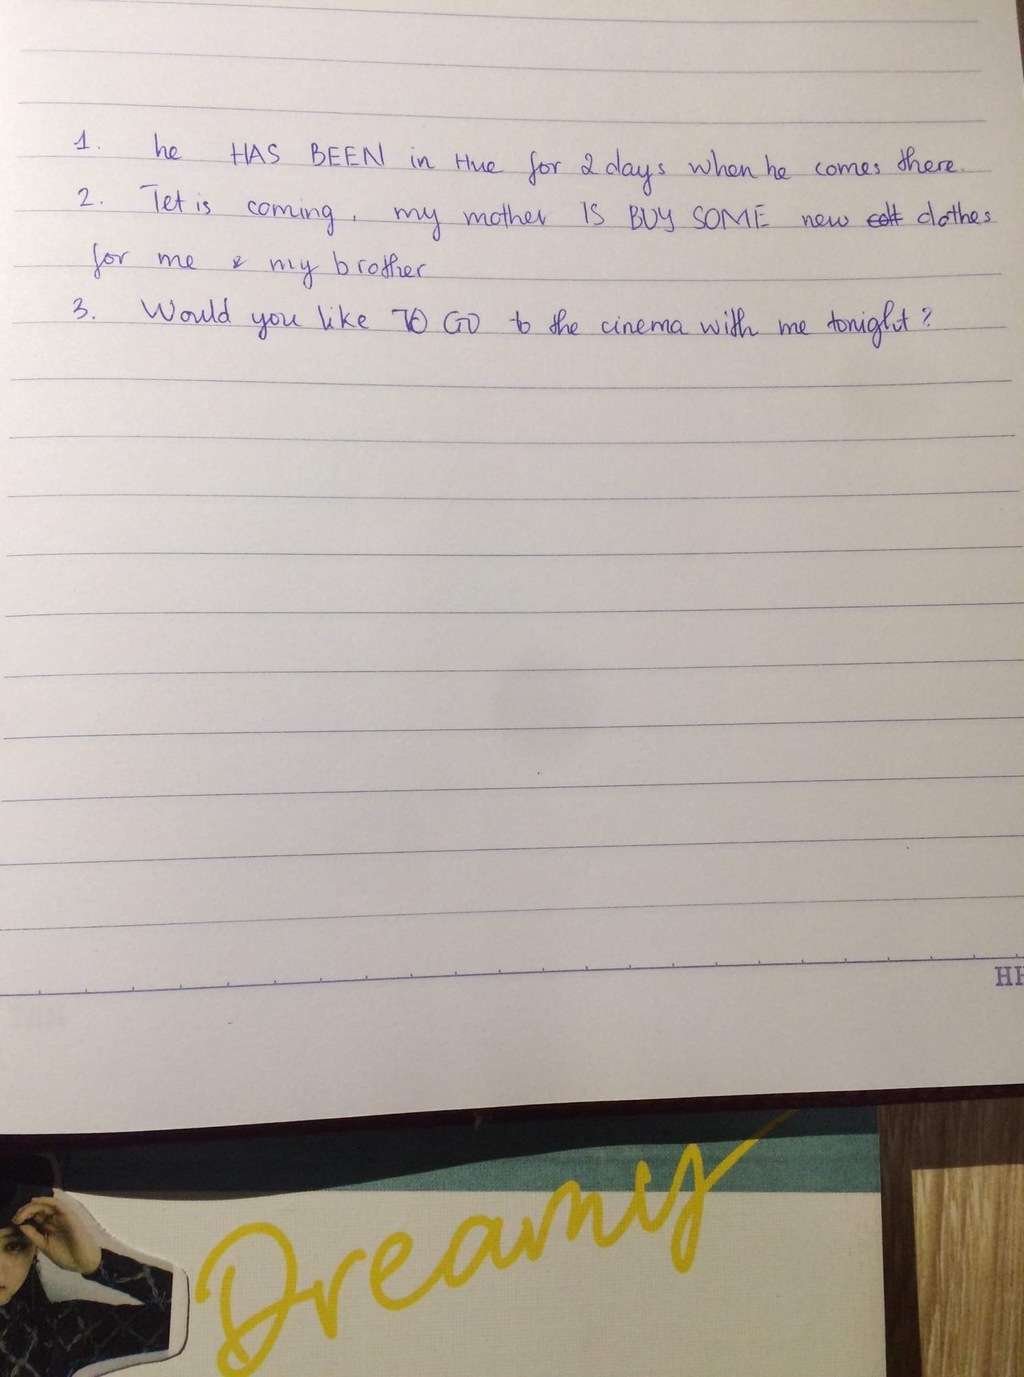 1. he HAS BEEN in Hue for 2 days when he comes there.
2. Tet is coming, my mother IS BUY SOME new clothes
for me & my brother
3. Would you like TO GO to the cinema with me tonight?
HH
Dreamy